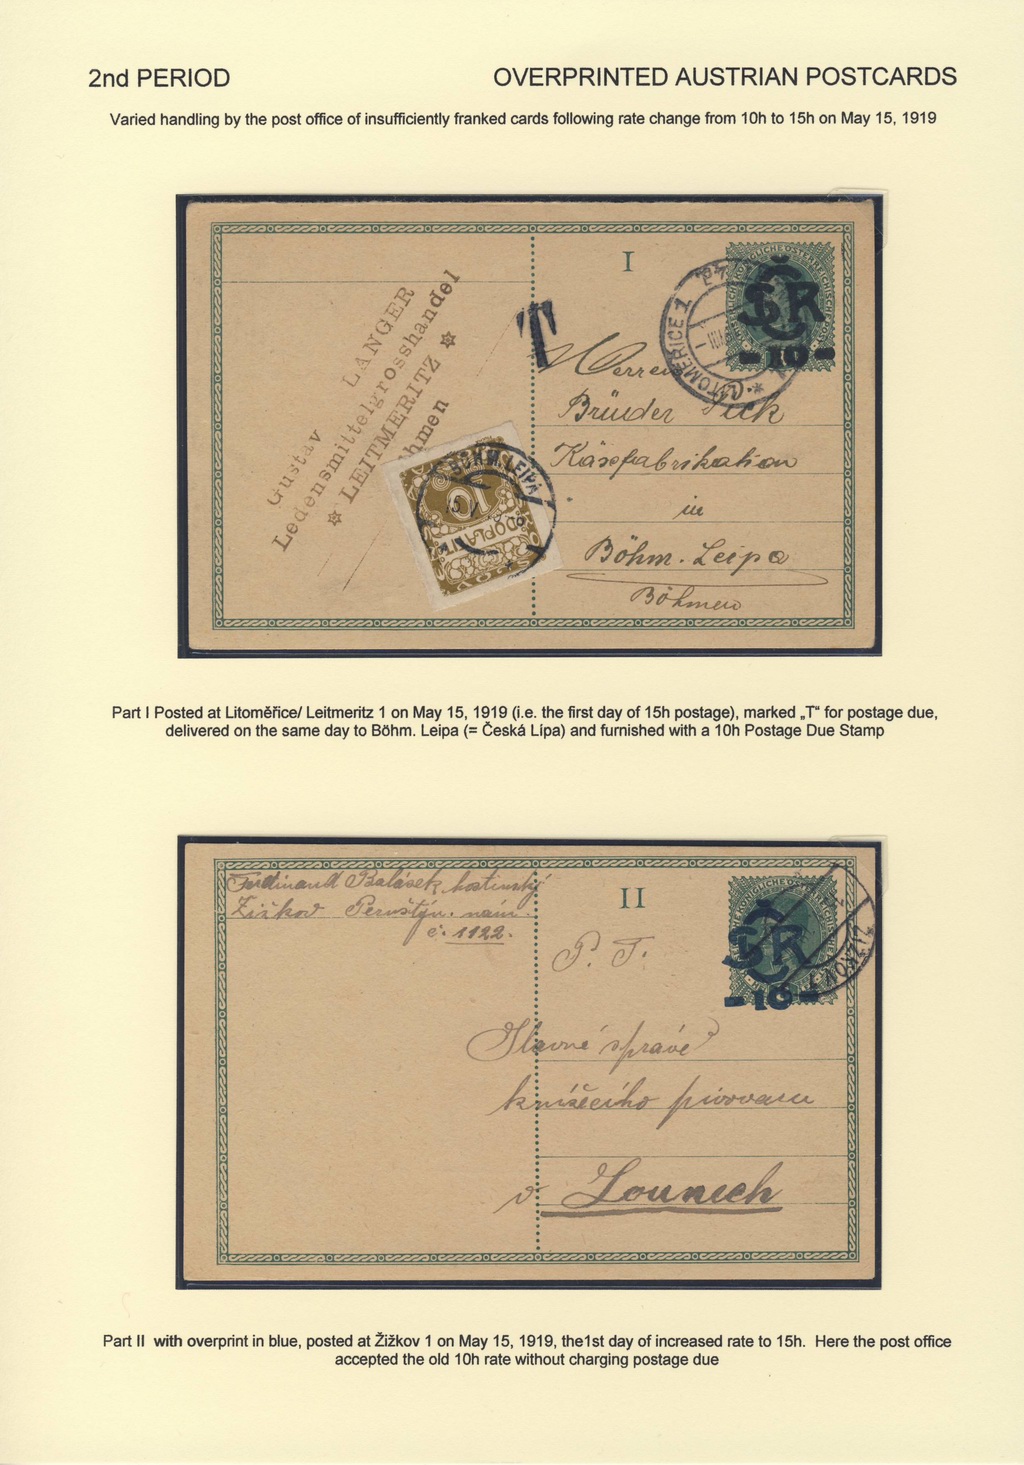 2nd PERIOD
OVERPRINTED AUSTRIAN POSTCARDS
Varied handling by the post office of insufficiently franked cards following rate change from 10h to 15h on May 15, 1919
I
ŠČR
-10-
LITOMĚŘICE 1
T
Gustav LANGER
Lebensmittelgrosshandel
LEITMERITZ
Böhmen
Herren
Brüder Pick
Käsefabrikation
in
Böhm. Leipa
Böhmen
BÖHM. LEIPA
10
DOPLATIT
Part I Posted at Litoměřice/ Leitmeritz 1 on May 15, 1919 (i.e. the first day of 15h postage), marked „T“ for postage due,
delivered on the same day to Böhm. Leipa (= Česká Lípa) and furnished with a 10h Postage Due Stamp
Ferdinand Balásek, hostinský
Žižkov Pernštýn. nám.
č. 1122.
II
ŠČR
-10-
ŽIŽKOV 1
P. T.
Slavné správě
knížecího pivovaru
v Lounech
Part II with overprint in blue, posted at Žižkov 1 on May 15, 1919, the1st day of increased rate to 15h. Here the post office
accepted the old 10h rate without charging postage due